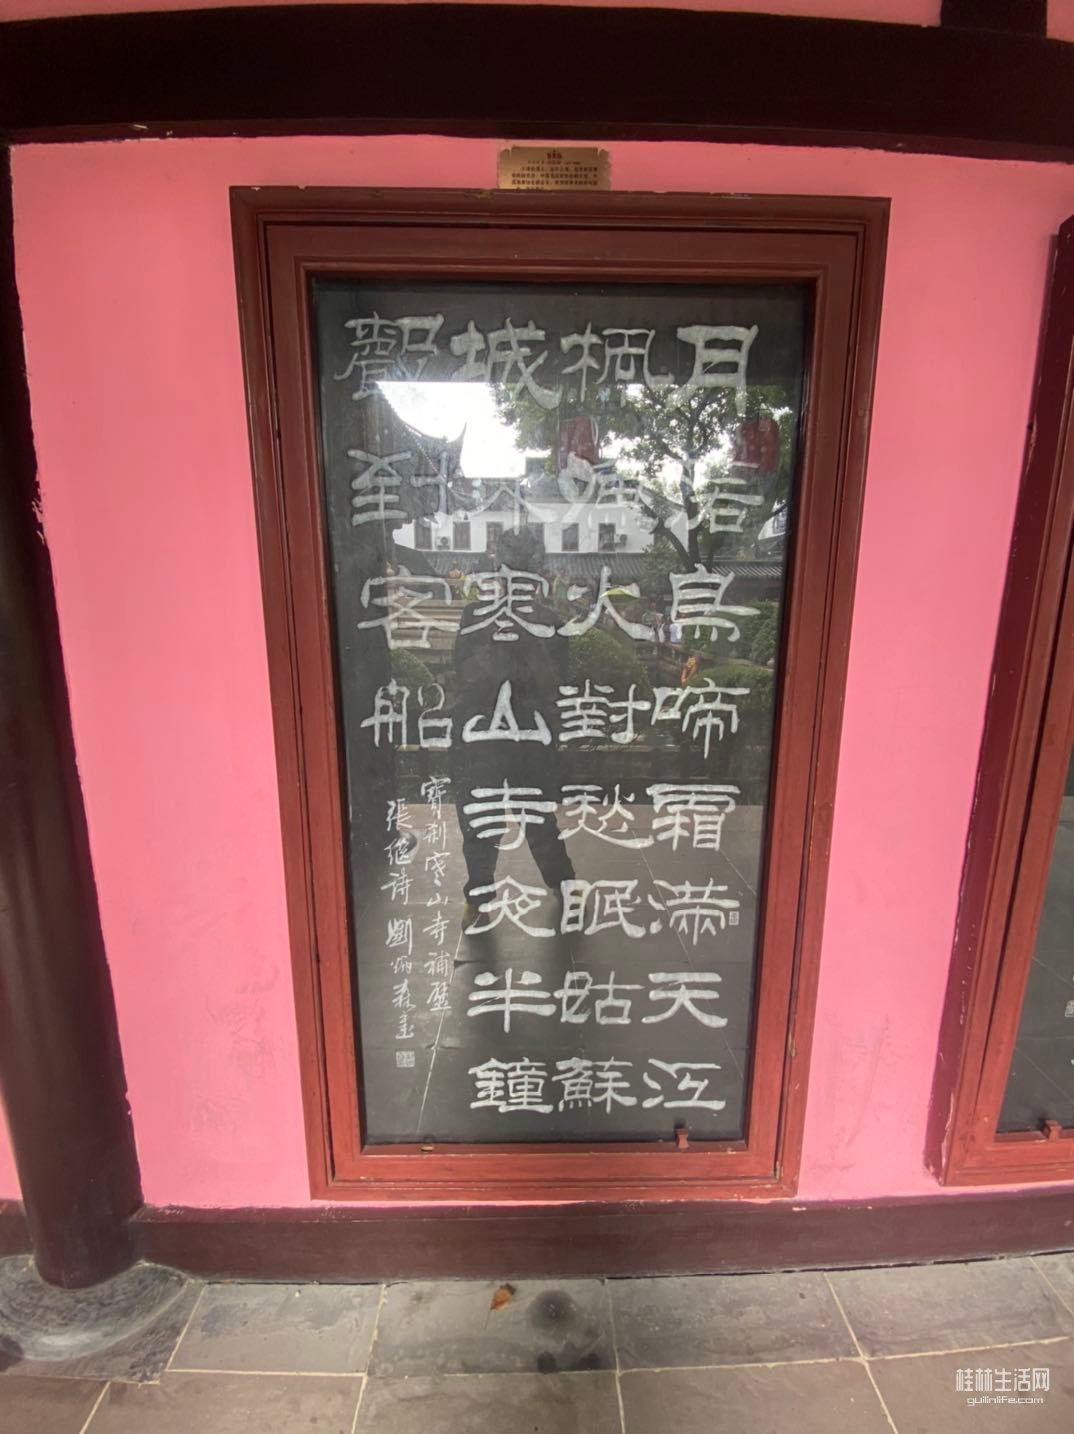 月落烏啼霜满天江
楓漁火對愁眠姑蘇
城外寒山寺夜半鐘
聲到客船
寶刹寒山寺補壁
張继詩 劉炳森書
桂林生活网
guilinlife.com